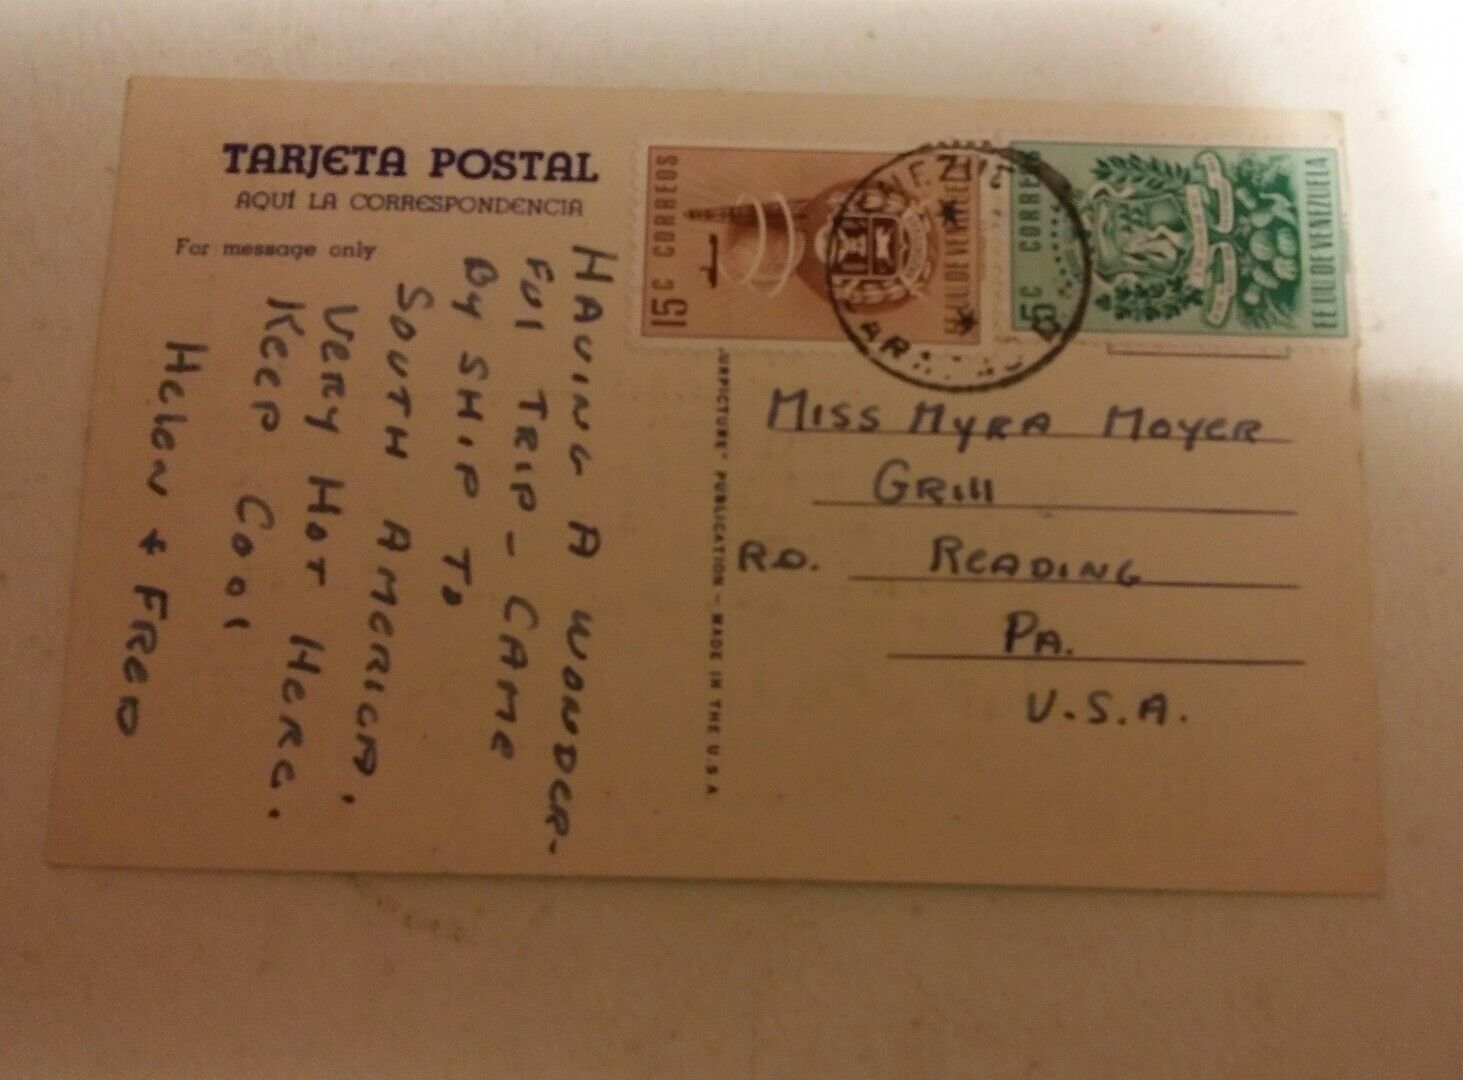 TARJETA POSTAL
AQUÍ LA CORRESPONDENCIA
For message only
HAVING A WONDER-
FUL TRIP - CAME
BY SHIP TO
SOUTH AMERICA.
VERY HOT HERE.
KEEP COOL
HELEN & FRED
PUBLICATION - MADE IN THE U.S.A.
15 C CORREOS
EE UU DE VENEZUELA
5 C CORREOS
EE UU DE VENEZUELA
MISS MYRA MOYER
GRILL
R.D. READING
PA.
U.S.A.